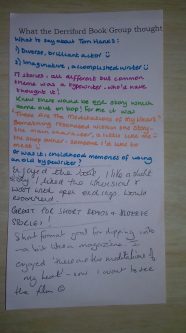 What the Derriford Book Group thought
What to say about Tom Hanks:
1) Diverse, brilliant actor
2) Imaginative, accomplished writer
17 stories - all different but common
theme was a typewriter - who'd have
thought it!
Knew there would be one story which
would pull my
"These Are The Meditations of My Heart"
Something resonated within the story -
the main character, a little like me
the shop owner - someone I'd like to
meet
Or was it childhood memories of using
an old typewriter?
Enjoyed the book, I like a short
story & liked the
went were open endings. would
recommend.
Great for short reads &
stories!
Short format good for dipping into
a bit like a magazine.
enjoyed these are the meditations of
my heart - now I want to see
the film